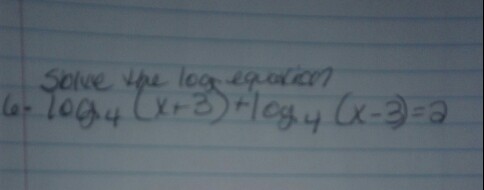 Solve the log equation
6. log₄ (x+3)+log₄ (x-3)=2